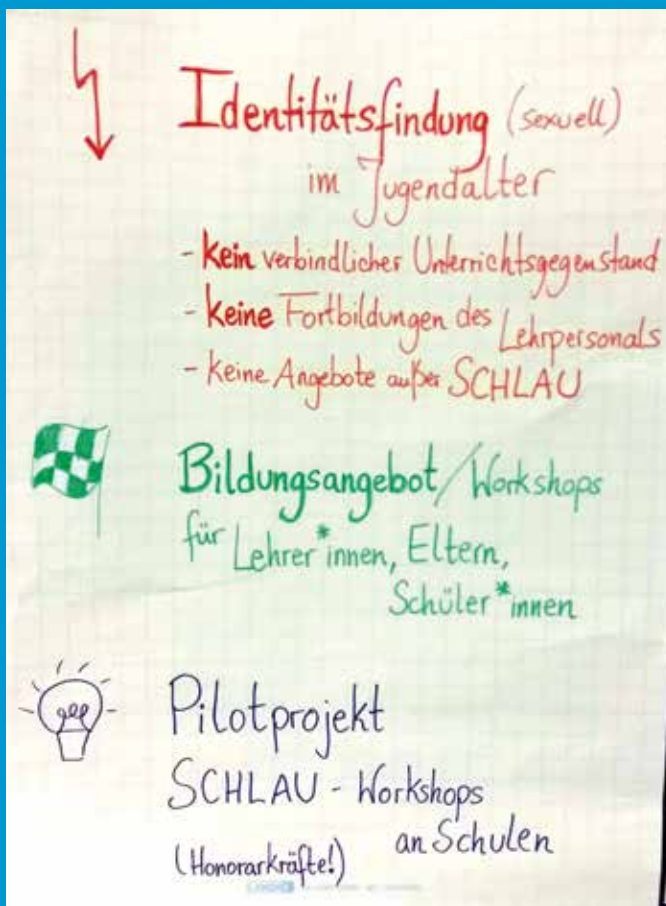 Identitätsfindung (sexuell)
im Jugendalter
- kein verbindlicher Unterrichtsgegenstand
- keine Fortbildungen des Lehrpersonals
- keine Angebote außer SCHLAU
Bildungsangebot/Workshops
für Lehrer*innen, Eltern,
Schüler*innen
Pilotprojekt
SCHLAU - Workshops
an Schulen
(Honorarkräfte!)